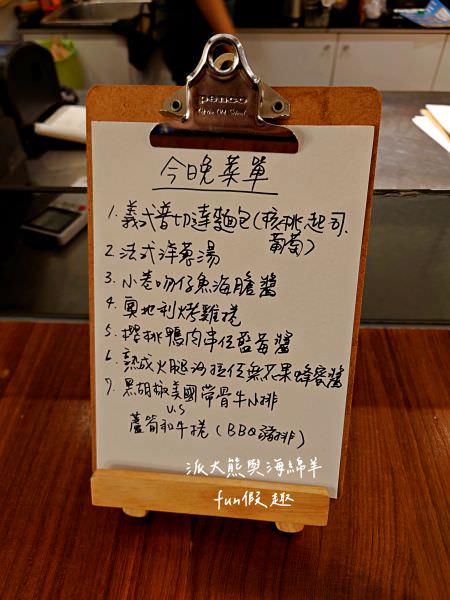 penco
今晚菜單
1. 義式普切達麵包(核桃.起司.
葡萄)
2. 法式洋蔥湯
3. 小卷吻仔魚海膽醬
4. 奧地利烤雞捲
5. 櫻桃鴨肉串佐藍莓醬
6. 熟成火腿沙拉佐無花果蜂蜜醬
7. 黑胡椒美國帶骨牛小排
U.S
蘆筍和牛捲(BBQ豬排)
派大熊與海綿羊
fun假趣